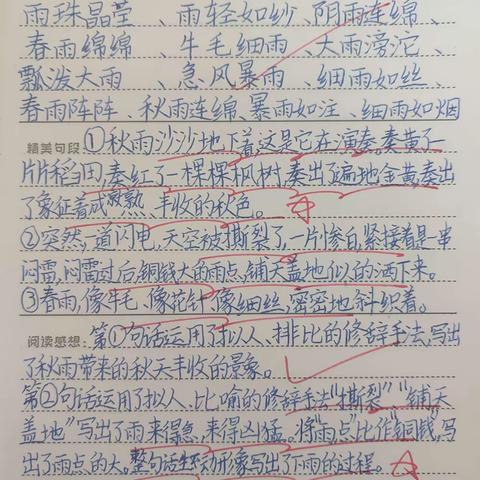 雨珠晶莹、雨轻如纱、阴雨连绵、
春雨绵绵、牛毛细雨、大雨滂沱、
瓢泼大雨、急风暴雨、细雨如丝、
春雨阵阵、秋雨连绵、暴雨如注、细雨如烟
精美句段 ①秋雨沙沙地下着,这是它在演奏。奏黄了一
片片稻田,奏红了一棵棵枫树,奏出了遍地金黄,奏出
了象征着成熟、丰收的秋色。
②突然,一道闪电,天空被撕裂了,一片惨白,紧接着是串
闷雷,闷雷过后,铜钱大的雨点,铺天盖地似的洒下来。
③春雨,像牛毛、像花针、像细丝,密密地斜织着。
阅读感想: 第①句话运用了拟人、排比的修辞手法,写出
了秋雨带来的秋天丰收的景象。
第②句话运用了拟人、比喻的修辞手法"撕裂""铺天
盖地"写出了雨来得急,来得凶猛。将"雨点"比作"铜钱",写
出了雨点的大。整句话生动形象写出了下雨的过程。